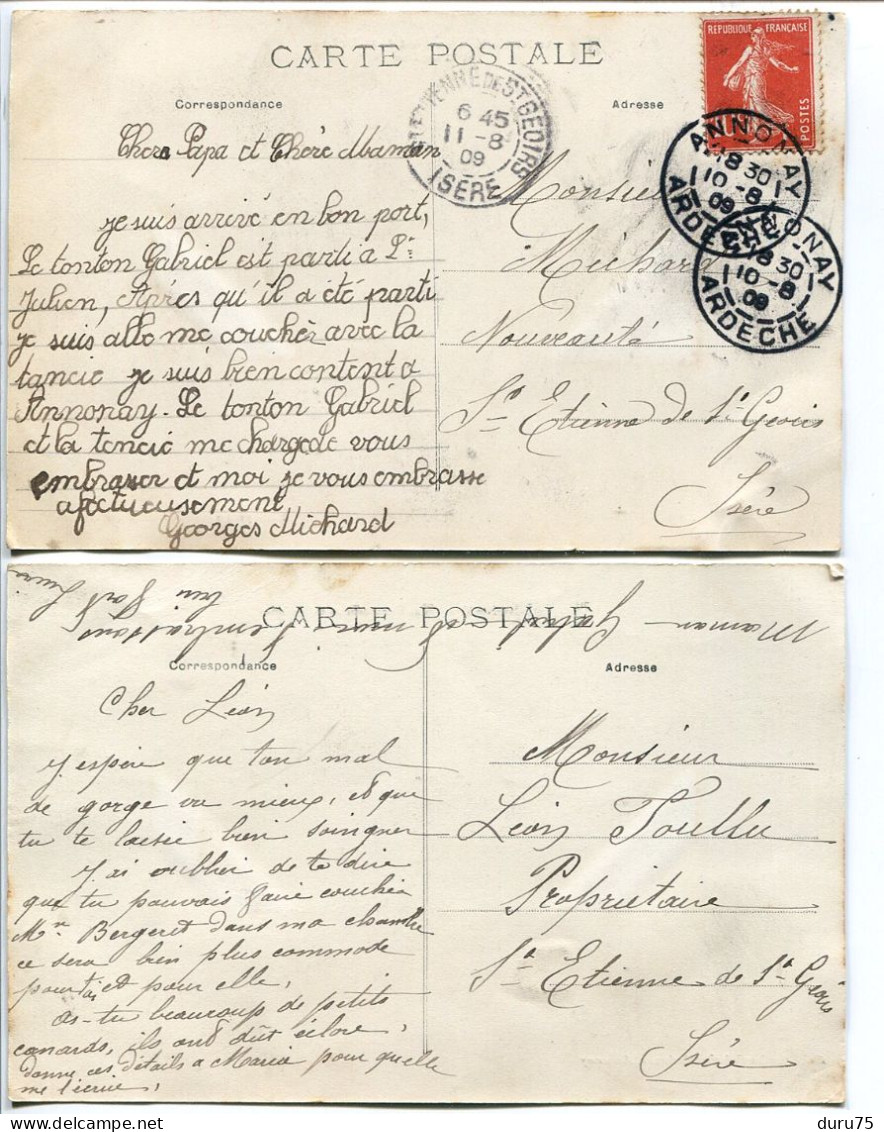 CARTE POSTALE
Correspondance
Adresse
REPUBLIQUE FRANÇAISE
POSTES
ST ETIENNE DE ST GEOIRS
6 45
11 - 8
09
ISERE
ANNONAY
18 30
10 - 8
09
ARDECHE
ANNONAY
18 30
10 - 8
09
ARDECHE
Chere Papa et Chère Maman
je suis arrivé en bon port,
Le tonton Gabriel est parti a St
Julien, Après qu'il a été parti
je suis allé me couchèr avec la
tancie je suis bien content a
Annonay. Le tonton Gabriel
et la tencie me charge de vous
embrasser et moi je vous embrasse
afectueusement
Georges Michard
Monsieur
Michard
Nouveauté
St Etienne de St Geoirs
Isère
CARTE POSTALE
Correspondance
Adresse
Maman Gabriel
Cher Léon
J espère que ton mal
de gorge va mieux, et que
tu te laisse bien soingner
J'ai oublier de te dire
que tu pouvais faire couchèr
Mr Bergeret dans ma chambre
ce sera bien plus commode
pour toi et pour elle,
as-tu beaucoup de petits
canards, ils ont dût éclore,
donne ces détails a Maria pour quelle
me l'écrive,
Monsieur
Léon
Proprietaire
St Etienne de St Geoirs
Isère
duru75